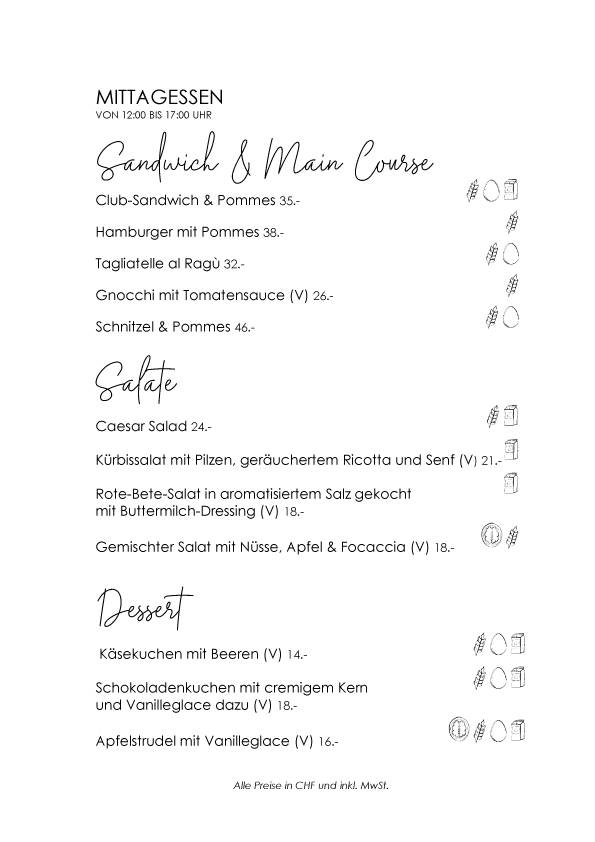 MITTAGESSEN
VON 12:00 BIS 17:00 UHR
Sandwich & Main Course
Club-Sandwich & Pommes 35.-
Hamburger mit Pommes 38.-
Tagliatelle al Ragù 32.-
Gnocchi mit Tomatensauce (V) 26.-
Schnitzel & Pommes 46.-
Salate
Caesar Salad 24.-
Kürbissalat mit Pilzen, geräuchertem Ricotta und Senf (V) 21.-
Rote-Bete-Salat in aromatisiertem Salz gekocht
mit Buttermilch-Dressing (V) 18.-
Gemischter Salat mit Nüsse, Apfel & Focaccia (V) 18.-
Dessert
Käsekuchen mit Beeren (V) 14.-
Schokoladenkuchen mit cremigem Kern
und Vanilleglace dazu (V) 18.-
Apfelstrudel mit Vanilleglace (V) 16.-
Alle Preise in CHF und inkl. MwSt.